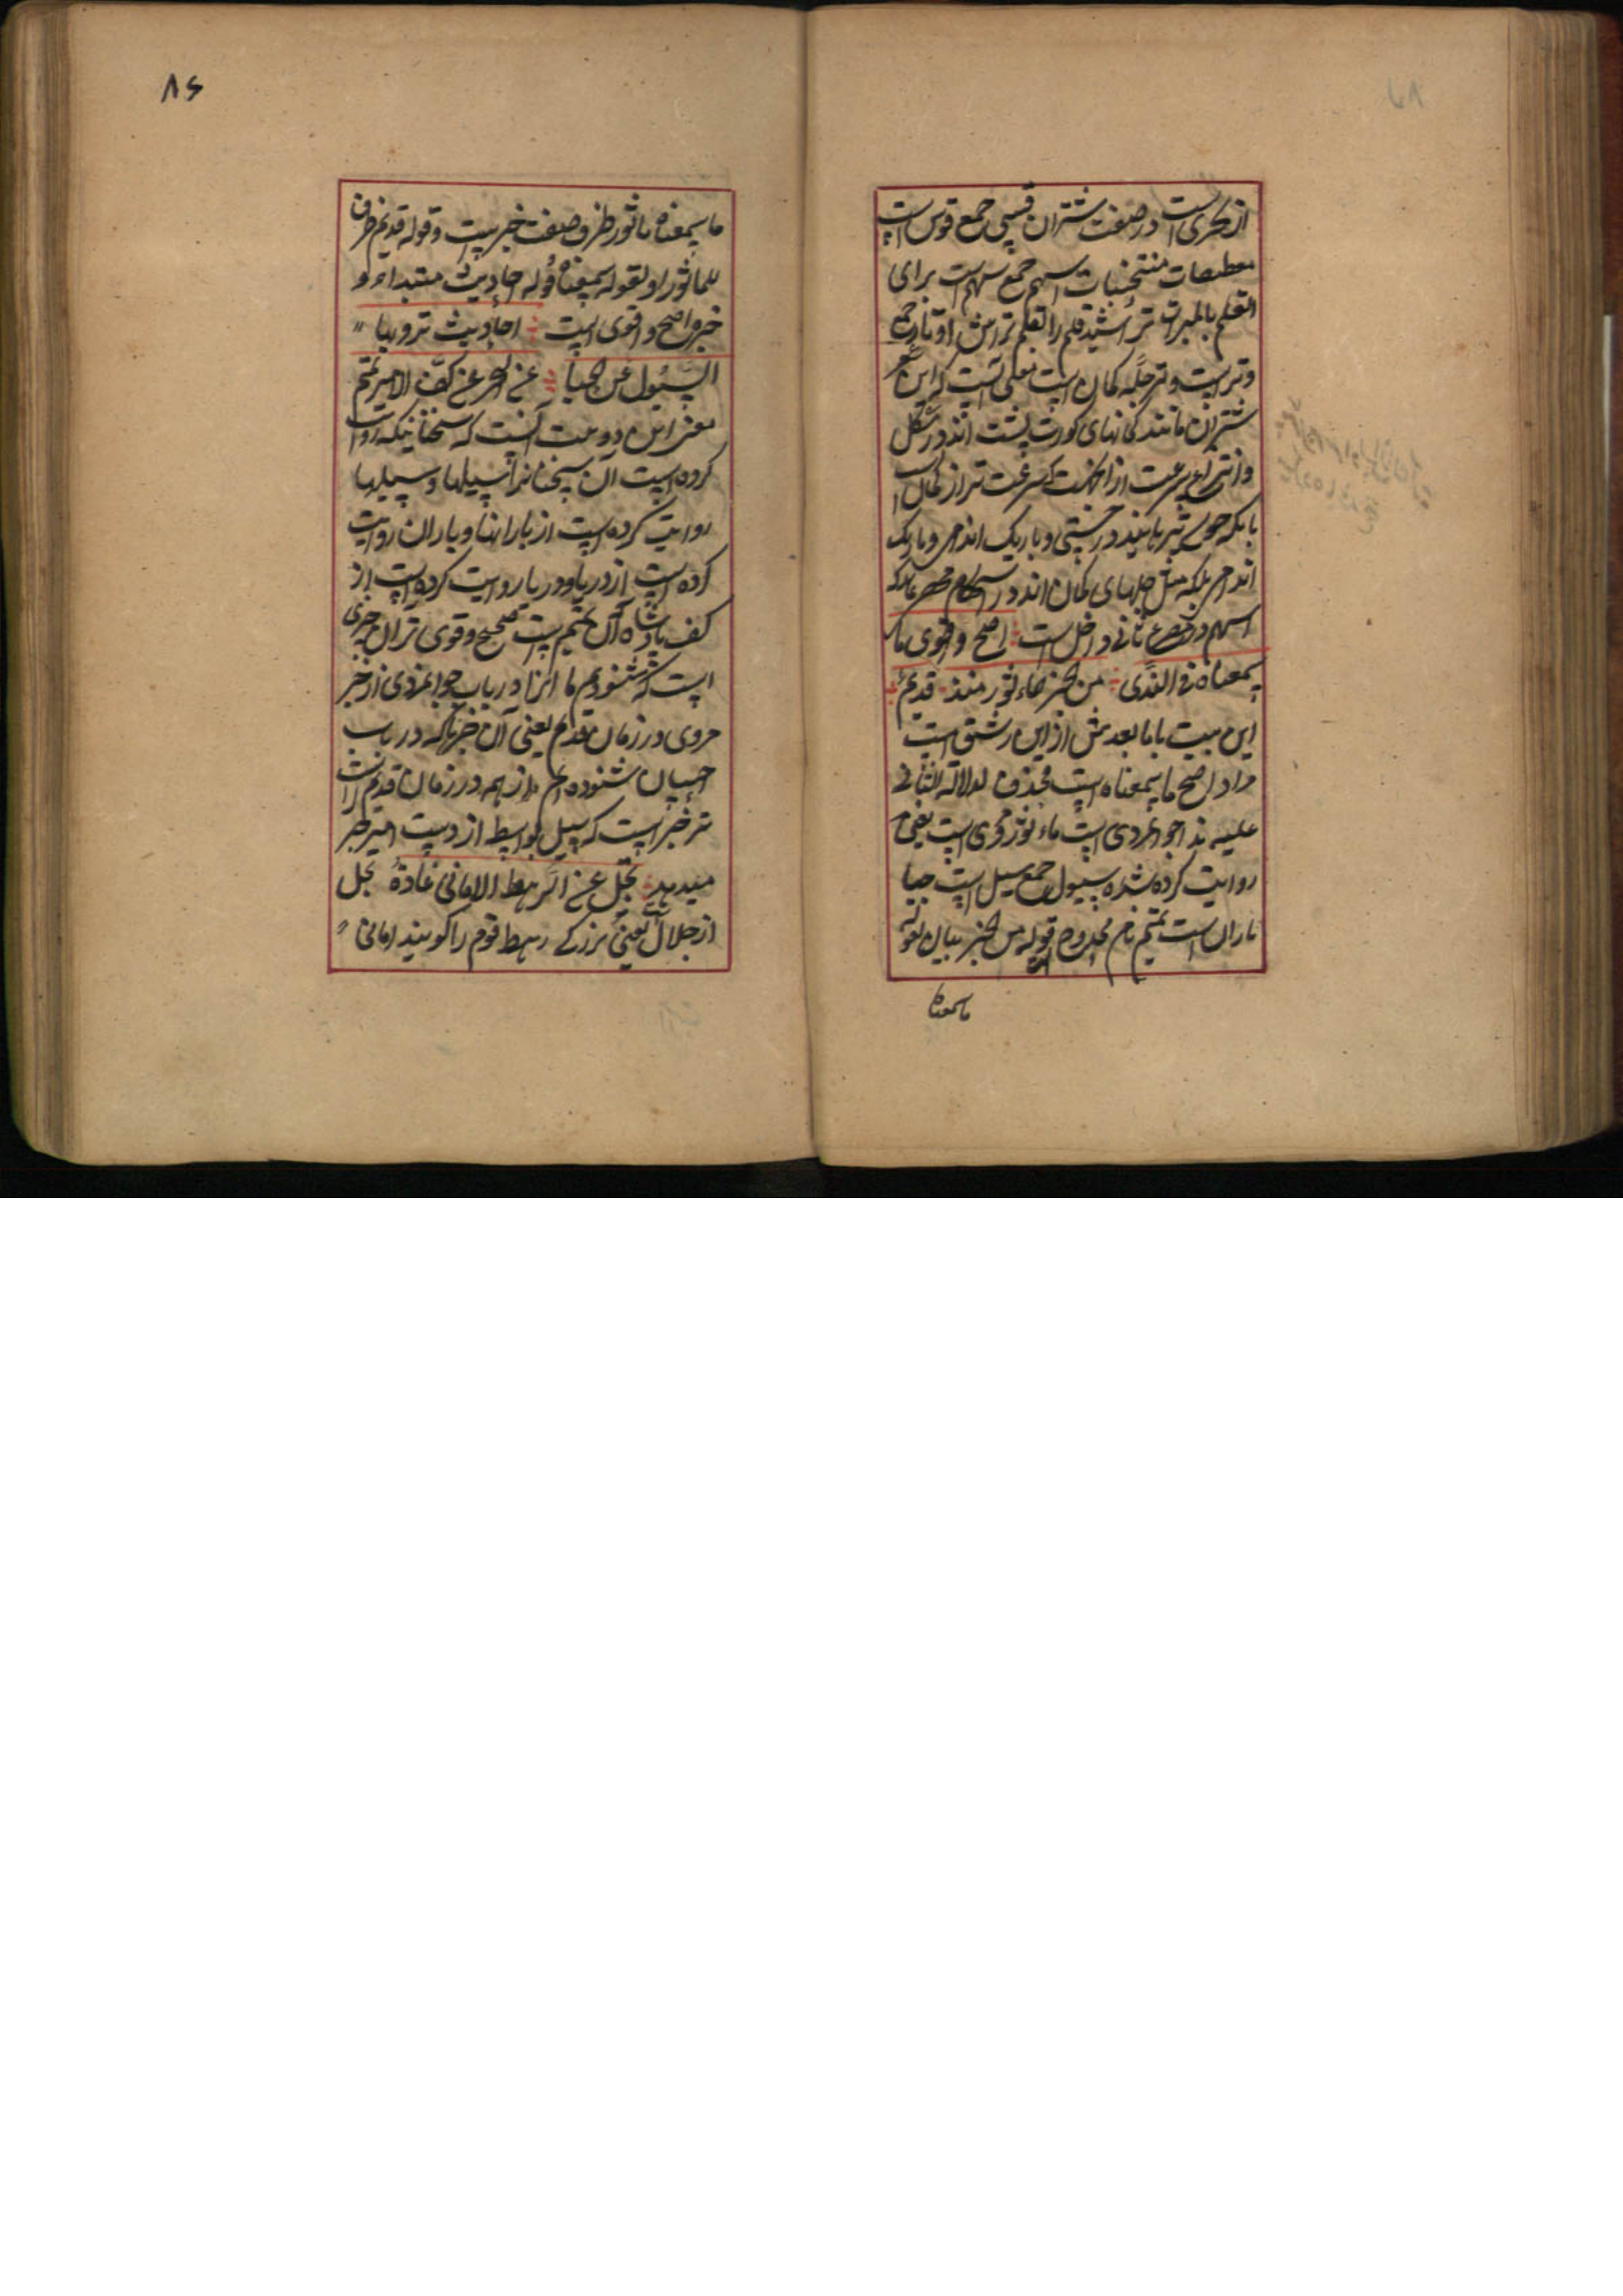 از بحری است در صفت شتران قسی جمع قوس است
معطفات منتخبات اسهم جمع سهم است برای
القلم بالمبرات تراشید قلم را بقلم تراش اوتار جمع
وتر است و وتر چله کمان است معنی آنست که این
شتران مانند کمانهای کوزپشت اند در شکل
و از سرعت
بلکه چون تیر هایند در چستی و باریک اندامی و باریک
اندامی بلکه مثل چلهای کمان اند در
اسهم در مصرع ثانی داخل است اصح و اقوی ما
سمعناه فی الندی من الخبر الماثور منذ قدیم
این بیت با ما بعدش از ابن رشیق است
مراد اصح ما سمعناه است محذوف لدلالة الثانی
علیه ندا جوانمردی است ماثور مروی است یعنی
روایت کرده شده سیول جمع سیل است حیا
باران است تمیم نام ممدوح است قوله من الخبر بیان لقوله
ما سمعناه
۸۶
ما سمعناه ماثور ظرف صفت خبر است و قوله قدیم ظرف
للماثور او لقوله سمعناه قوله احادیث مبتداء و
خبر اصح و اقوی است احادیث ترویها
السیول عن الحیا عن البحر عن کف الامیر تمیم
معنی این دو بیت آنست که سخنانیکه روایت
کرده است آن سخنانرا سیلها و سیلها
روایت کرده است از بارانها و باران روایت
کرده است از دریا و دریا روایت کرده است از
کف پادشاه آن تمیم است صحیح و قوی تر آن چیزی
است که شنودیم ما انرا در باب جوانمردی از خبر
مروی در زمان قدیم یعنی آن خبرها که در باب
احسان شنوده ایم از همه در زمان قدیم راست
تر خبر است که سیل بواسطه از دست امیر خبر
میدهد تجل عن الرهط الامانی غادة تجل
از جلال است یعنی بزرگی رهط قوم را گویند امانی